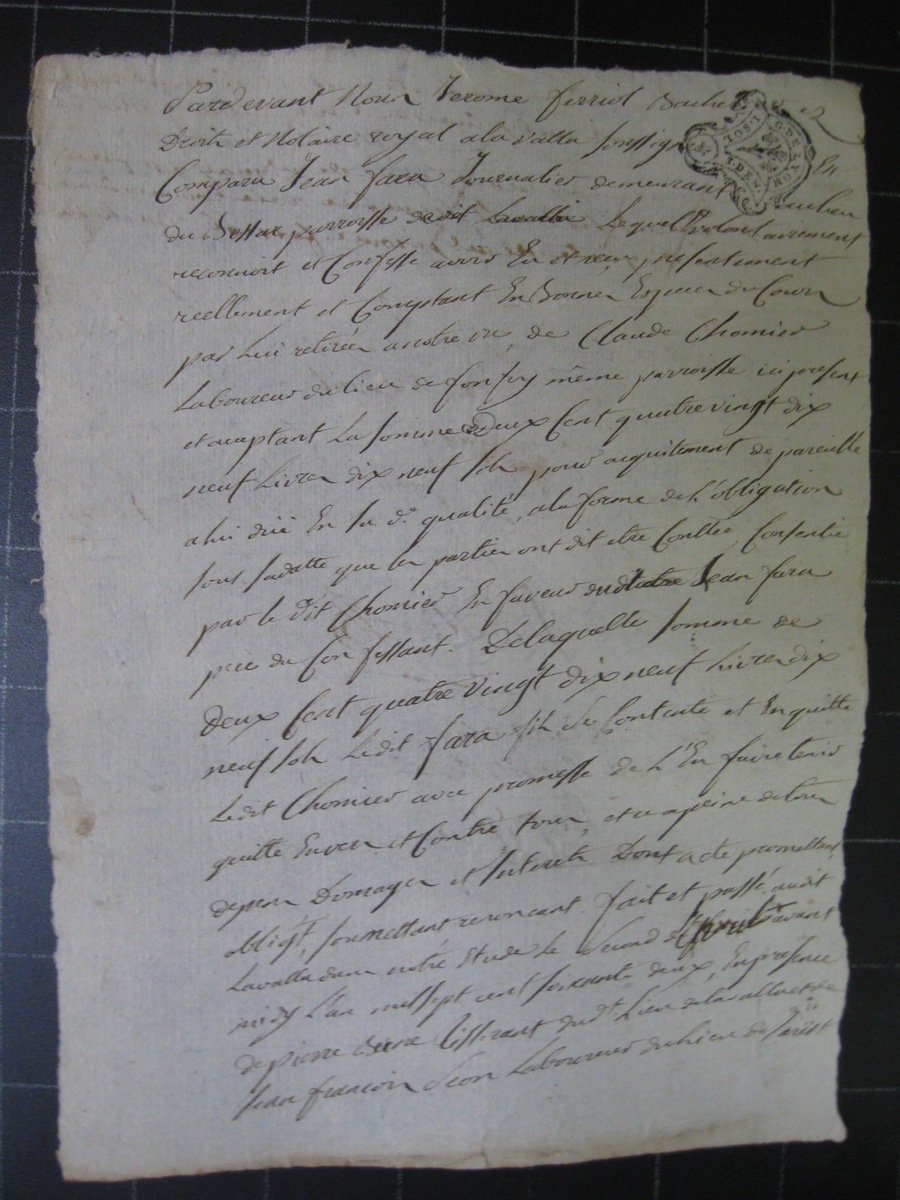 Pardevant Nous Jerome ferriol Bache
Droits et Notaire royal a la Valla soussig
Comparu Jean fara Journalier demeurant au lieu
du Bessac parroisse dudit Lavalla Lequel volontairement
reconnoit et Confesse avoir Eu et reçu presentement
reellement et Comptant En Bonnes Especes du Cours
par Lui retirées a notre vu, de Claude Chomier
Laboureur du lieu de fonfoy même parroisse ici present
et aceptant La somme de deux Cent quatre vingt dix
neuf Livres dix neuf sols pour acquitement de pareille
a lui düe En sa de. qualité, a la forme de L'obligation
sous sadatte que les parties ont dit etre Contlée, Consentie
par le dit Chomier En faveur dudt autre Jean fara
pere du Confessant. De laquelle somme de
Deux Cent quatre vingt dix neuf Livres dix
neuf sols Ledit fara fils Se Contente et En quitte
Ledit Chomier avec promesse de L'En faire tenir
quitte Envers et Contre tous, et ce a peine de tous
depens Domages et Interets Dont acte promettant,
obligt, soumettant renoncant. fait et passé audit
Lavalla dans notre Etude Le Second d'avril avant
midy L'an mil sept cent soixante deux, En presence
de pierre tisserant dudt Lieu de la valla et de
Jean francois Seon Laboureur du lieu de